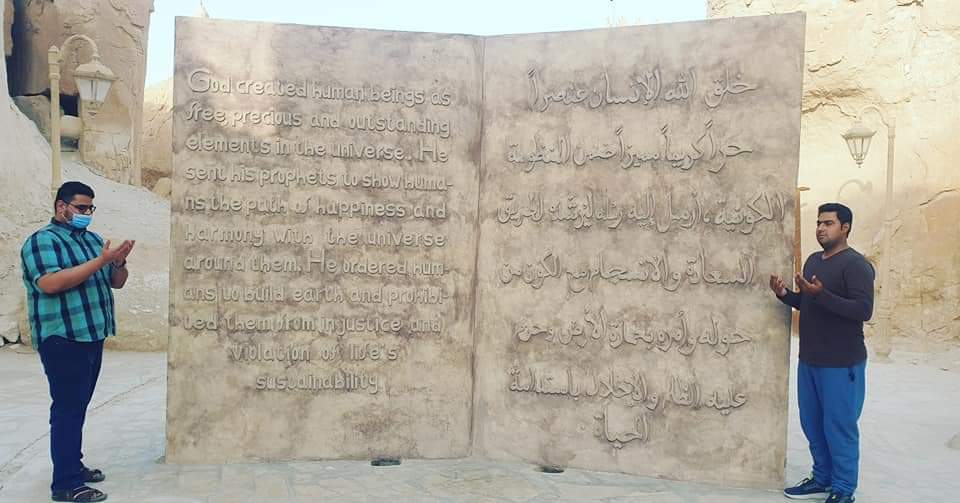 God created human beings as
free, precious and outstanding
elements in the universe. He
sent his prophets to show huma-
ns the path of happiness and
harmony with the universe
around them. He ordered hum-
ans to build earth and prohibi-
ted them from injustice and
violation of life's
sustainability
خلق الله الإنسان عنصراً
حراً كريماً مميزاً ضمن المنظومة
الكونية ، أرسل إليه رسله ليرشده لطريق
السعادة والانسجام مع الكون من
حوله وأمره بعمارة الأرض وحرم
عليه الظلم والإخلال باستدامة
الحياة.